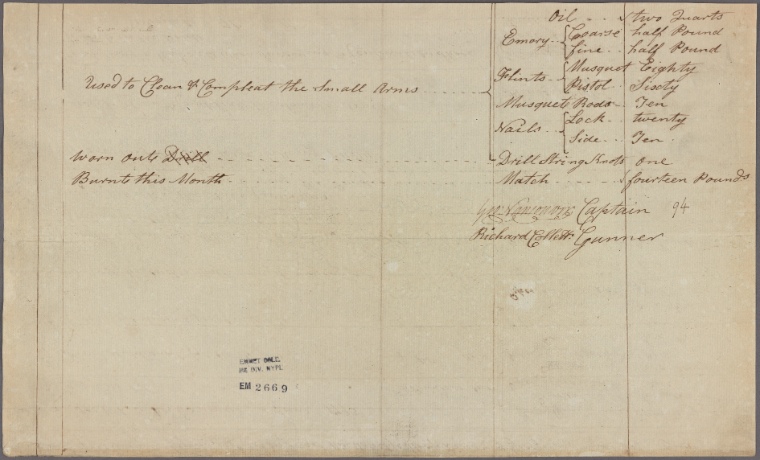 Oil .. two Quarts
Emory .. Coarse .. half Pound
fine .. half Pound
Flints .. Musquet Eighty
Pistol .. Sixty
Used to Clean & Compleat the Small Arms
Musquet Rods .. Ten
Nails .. Lock .. twenty
Side .. Ten
Worn out Drill Drill String Knot one
Burnt this Month Match fourteen Pounds
Captain 94
Richard Gunner
EMMET COLL.
MS DIV. NYPL
EM 2669